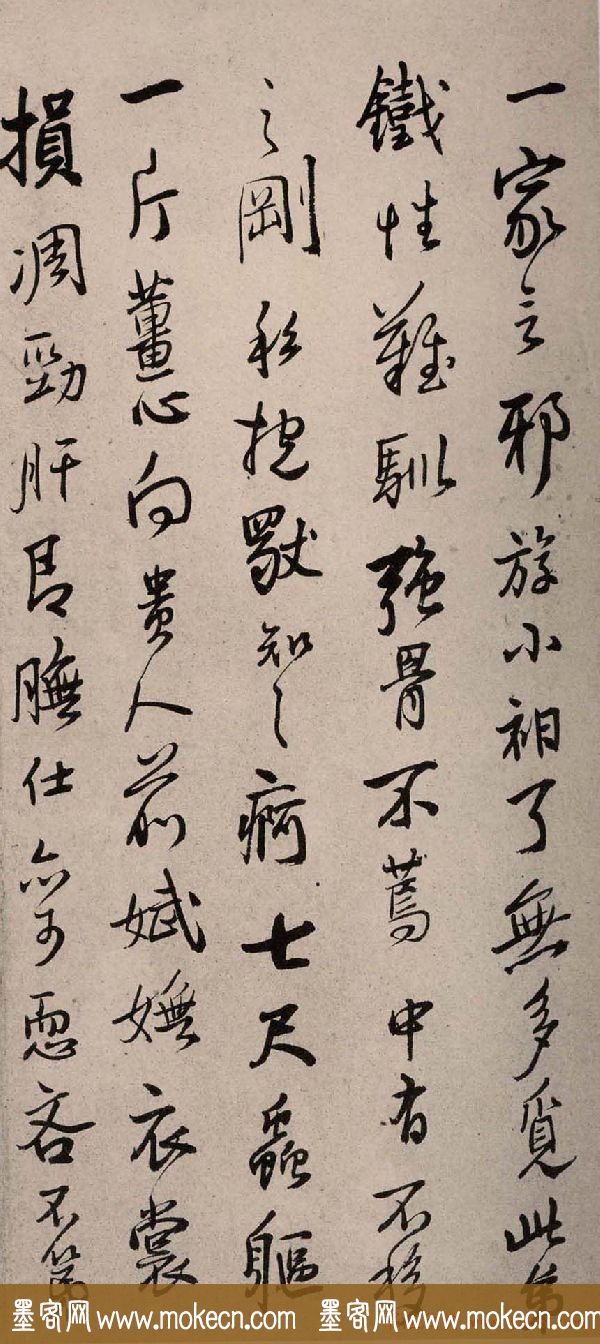 一家言邪游小袒了無多覓此
鐵性難馴強骨不蔫中有不移
之剛私抱獸知之痾七尺蟲軀
一片薑心向貴人前娬嫵衣裳
損凋勁肝鬲膴仕亦可恧吝不
墨客网 www.mokecn.com 墨客网 www.mokecn.com